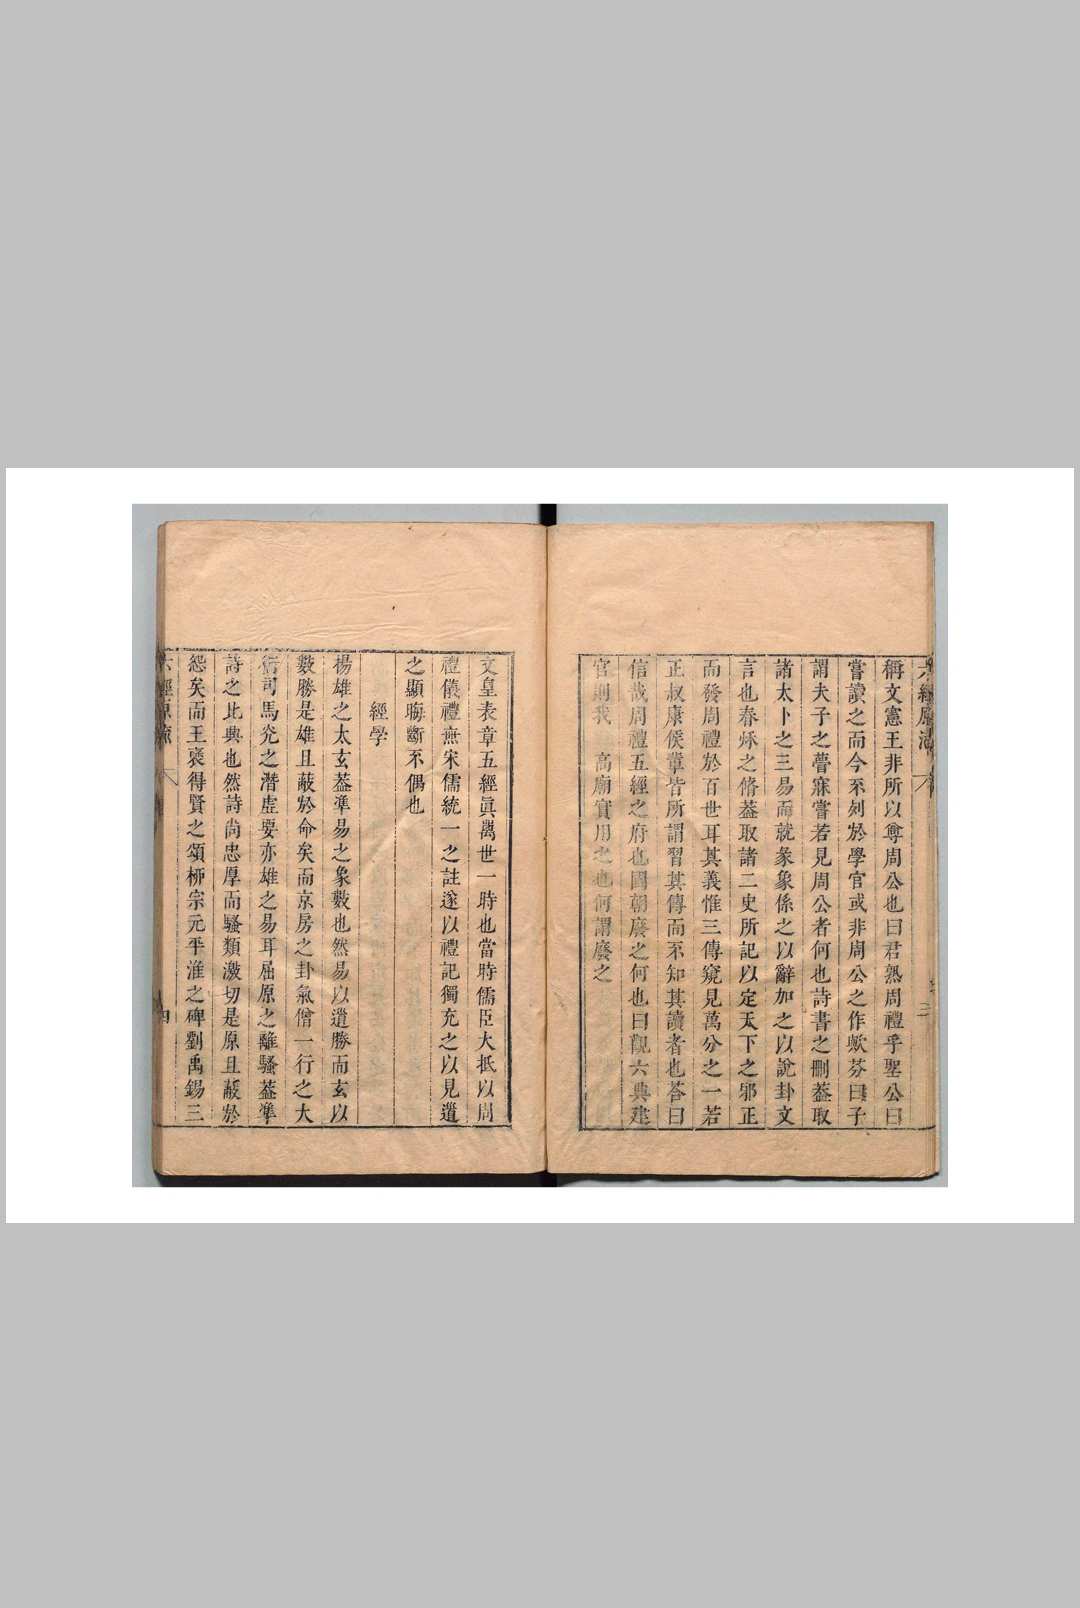 六經原流
稱文憲王非所以尊周公也曰君熟周禮乎聖公曰
嘗讀之而今不列於學官或非周公之作歟芬曰子
謂夫子之瞢寐嘗若見周公者何也詩書之刪葢取
諸太卜之三易而就彖象係之以辭加之以說卦文
言也春秌之脩葢取諸二史所記以定天下之邪正
而發周禮於百世耳其義惟三傳窺見萬分之一若
正叔康侯輩皆所謂習其傳而不知其讀者也荅曰
信哉周禮五經之府也國朝廢之何也曰觀六典建
官則我 高廟實用之也何謂廢之
文皇表章五經眞曠世一時也當時儒臣大抵以周
禮儀禮無宋儒統一之註遂以禮記獨充之以見遺
之顯晦斷不偶也
經學
楊雄之太玄葢準易之象數也然易以道勝而玄以
數勝是雄且蔽於命矣而京房之卦氣僧一行之大
衍司馬光之潛虛要亦雄之易耳屈原之離騷葢準
詩之比興也然詩尚忠厚而騷類激切是原且蔽於
怨矣而王褒得賢之頌栁宗元平淮之碑劉禹錫三
六經原流
四